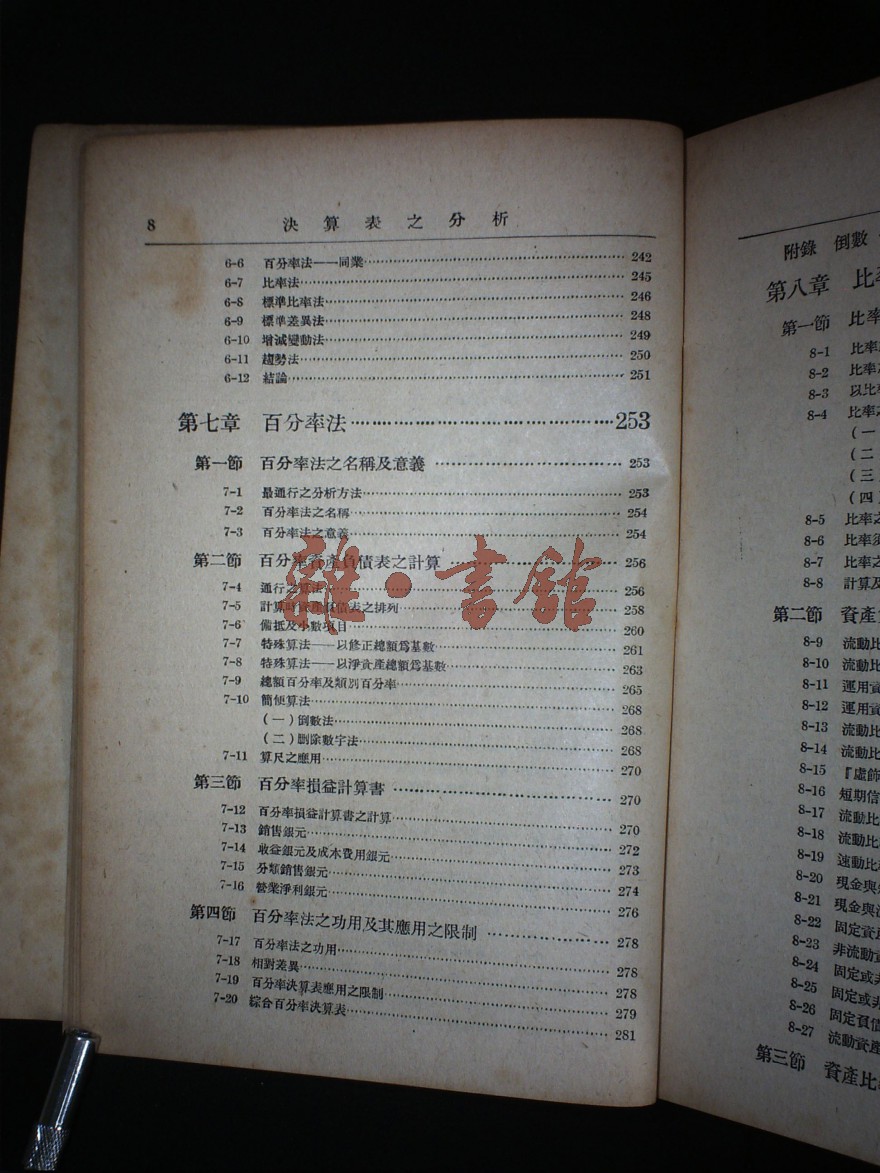 8 決算表之分析
6-6 百分率法——同業 242
6-7 比率法 245
6-8 標準比率法 246
6-9 標準差異法 248
6-10 增減變動法 249
6-11 趨勢法 250
6-12 結論 251
第七章 百分率法 253
第一節 百分率法之名稱及意義 253
7-1 最通行之分析方法 253
7-2 百分率法之名稱 254
7-3 百分率法之意義 254
第二節 百分率資產負債表之計算 256
7-4 通行之算法 256
7-5 計算時資產負債表之排列 258
7-6 備抵及小數項目 260
7-7 特殊算法——以修正總額爲基數 261
7-8 特殊算法——以淨資產總額爲基數 263
7-9 總額百分率及類別百分率 265
7-10 簡便算法 268
(一)倒數法 268
(二)刪除數字法 268
7-11 算尺之應用 270
第三節 百分率損益計算書 270
7-12 百分率損益計算書之計算 270
7-13 銷售銀元 272
7-14 收益銀元及成本費用銀元 273
7-15 分類銷售銀元 274
7-16 營業淨利銀元 276
第四節 百分率法之功用及其應用之限制 278
7-17 百分率法之功用 278
7-18 相對差異 278
7-19 百分率決算表應用之限制 279
7-20 綜合百分率決算表 281
雜·書館
附錄 倒數
第八章 比率
第一節 比率
8-1 比率
8-2 比率
8-3 以比
8-4 比率
(一
(二
(三
(四
8-5 比率之
8-6 比率須
8-7 比率之
8-8 計算及
第二節 資產
8-9 流動比
8-10 流動比
8-11 運用資
8-12 運用資
8-13 流動比
8-14 流動比
8-15 『虛飾
8-16 短期信
8-17 流動比
8-18 流動比
8-19 速動比
8-20 現金與
8-21 現金與
8-22 固定資產
8-23 非流動資
8-24 固定或非
8-25 固定或非
8-26 固定負債
8-27 流動資產
第三節 資產比